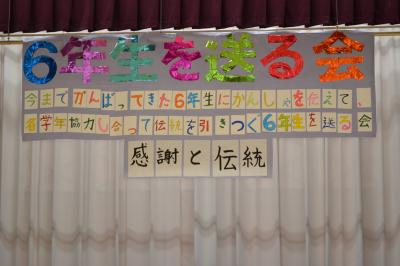 6年生を送る会
今までがんばってきた6年生にかんしゃを伝えて、
各学年協力し合って伝統を引きつぐ6年生を送る会
感謝と伝統